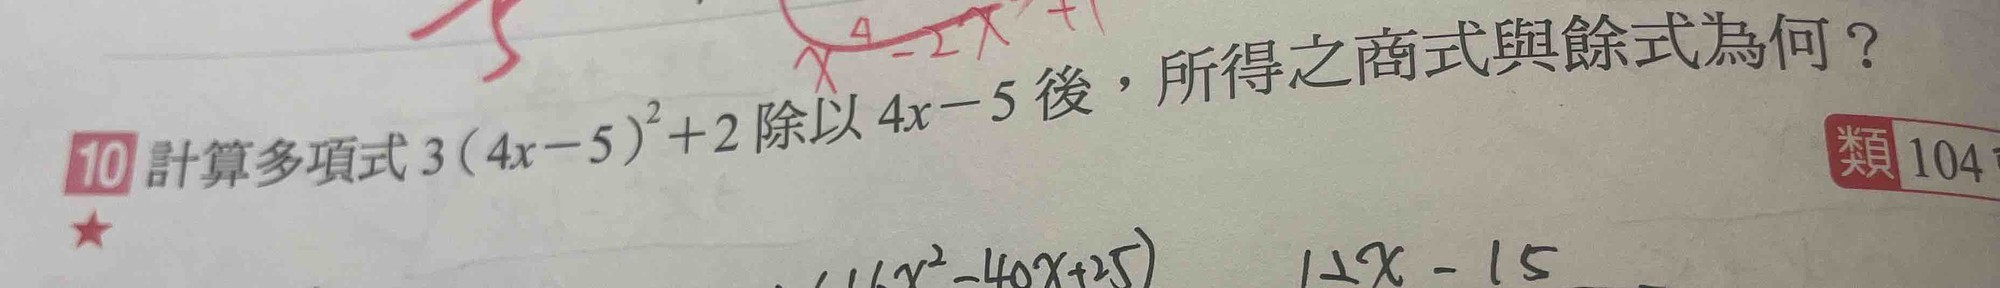 5
x⁴-2x²+1
10 計算多項式 3(4x-5)²+2 除以 4x-5 後，所得之商式與餘式為何？
類 104
★
(16x²-40x+25) 12x-15